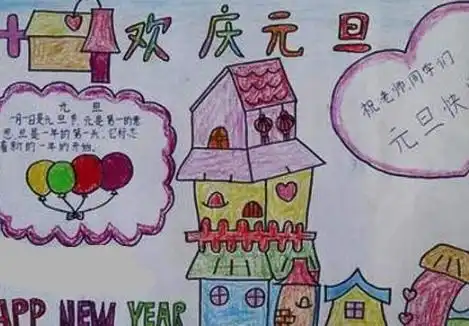 欢庆元旦
元旦
一月一日是元旦节,元是第一的意
思,旦是一年的第一天,它标志
着新的一年的开始。
祝老师,同学们
元旦快
APP NEW YEAR